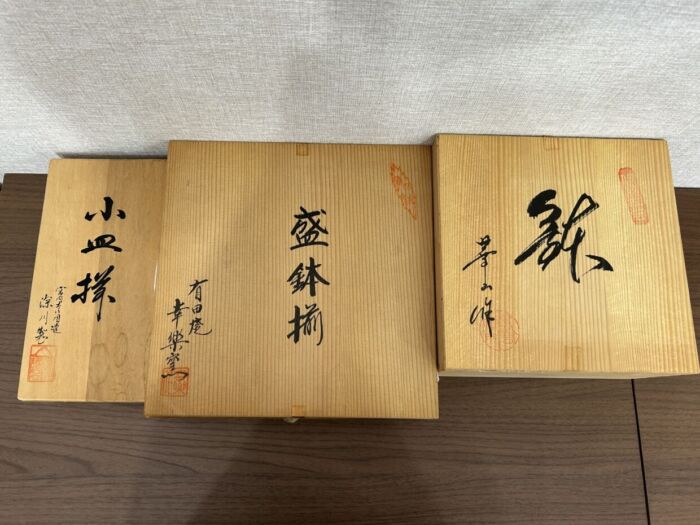 小皿揃
宮内庁御用達
深川製
盛鉢揃
有田焼
幸樂窯
鉢